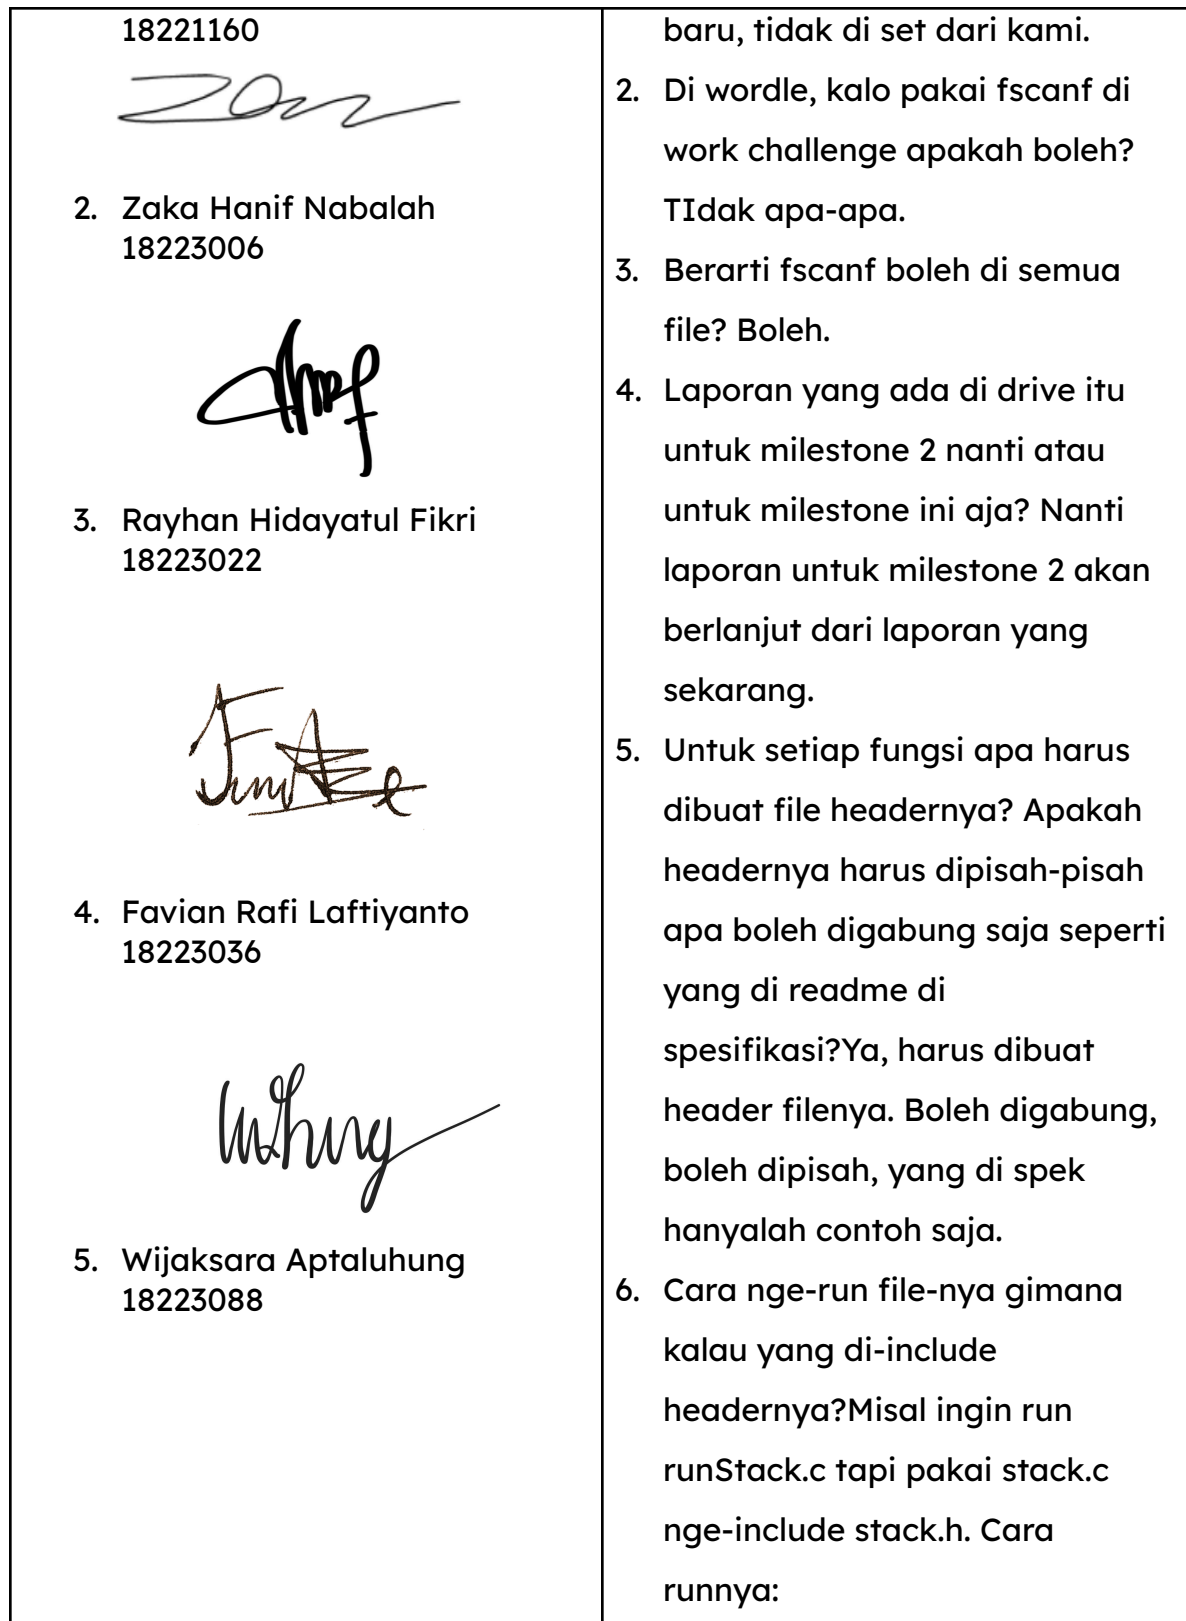 18221160
2. Zaka Hanif Nabalah
18223006
3. Rayhan Hidayatul Fikri
18223022
4. Favian Rafi Laftiyanto
18223036
5. Wijaksara Aptaluhung
18223088
baru, tidak di set dari kami.
2. Di wordle, kalo pakai fscanf di
work challenge apakah boleh?
TIdak apa-apa.
3. Berarti fscanf boleh di semua
file? Boleh.
4. Laporan yang ada di drive itu
untuk milestone 2 nanti atau
untuk milestone ini aja? Nanti
laporan untuk milestone 2 akan
berlanjut dari laporan yang
sekarang.
5. Untuk setiap fungsi apa harus
dibuat file headernya? Apakah
headernya harus dipisah-pisah
apa boleh digabung saja seperti
yang di readme di
spesifikasi?Ya, harus dibuat
header filenya. Boleh digabung,
boleh dipisah, yang di spek
hanyalah contoh saja.
6. Cara nge-run file-nya gimana
kalau yang di-include
headernya?Misal ingin run
runStack.c tapi pakai stack.c
nge-include stack.h. Cara
runnya: